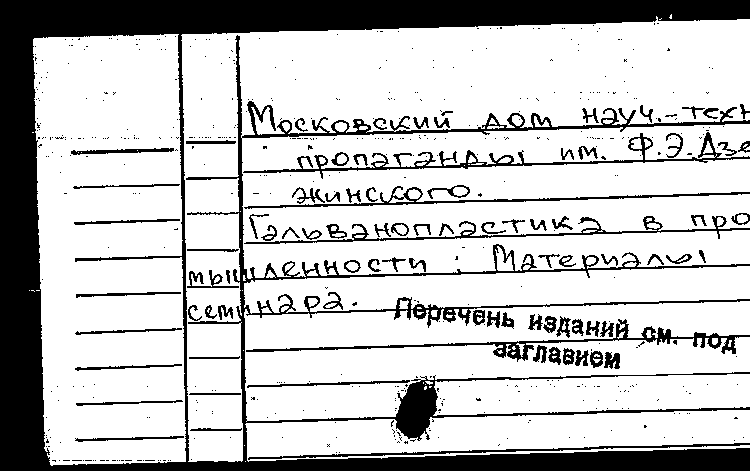 Московский дом науч.-техн
пропаганды им. Ф.Э.Дзе
жинского.
Гальванопластика в про
мышленности : Материалы
семинара.
Перечень изданий см. под
заглавием